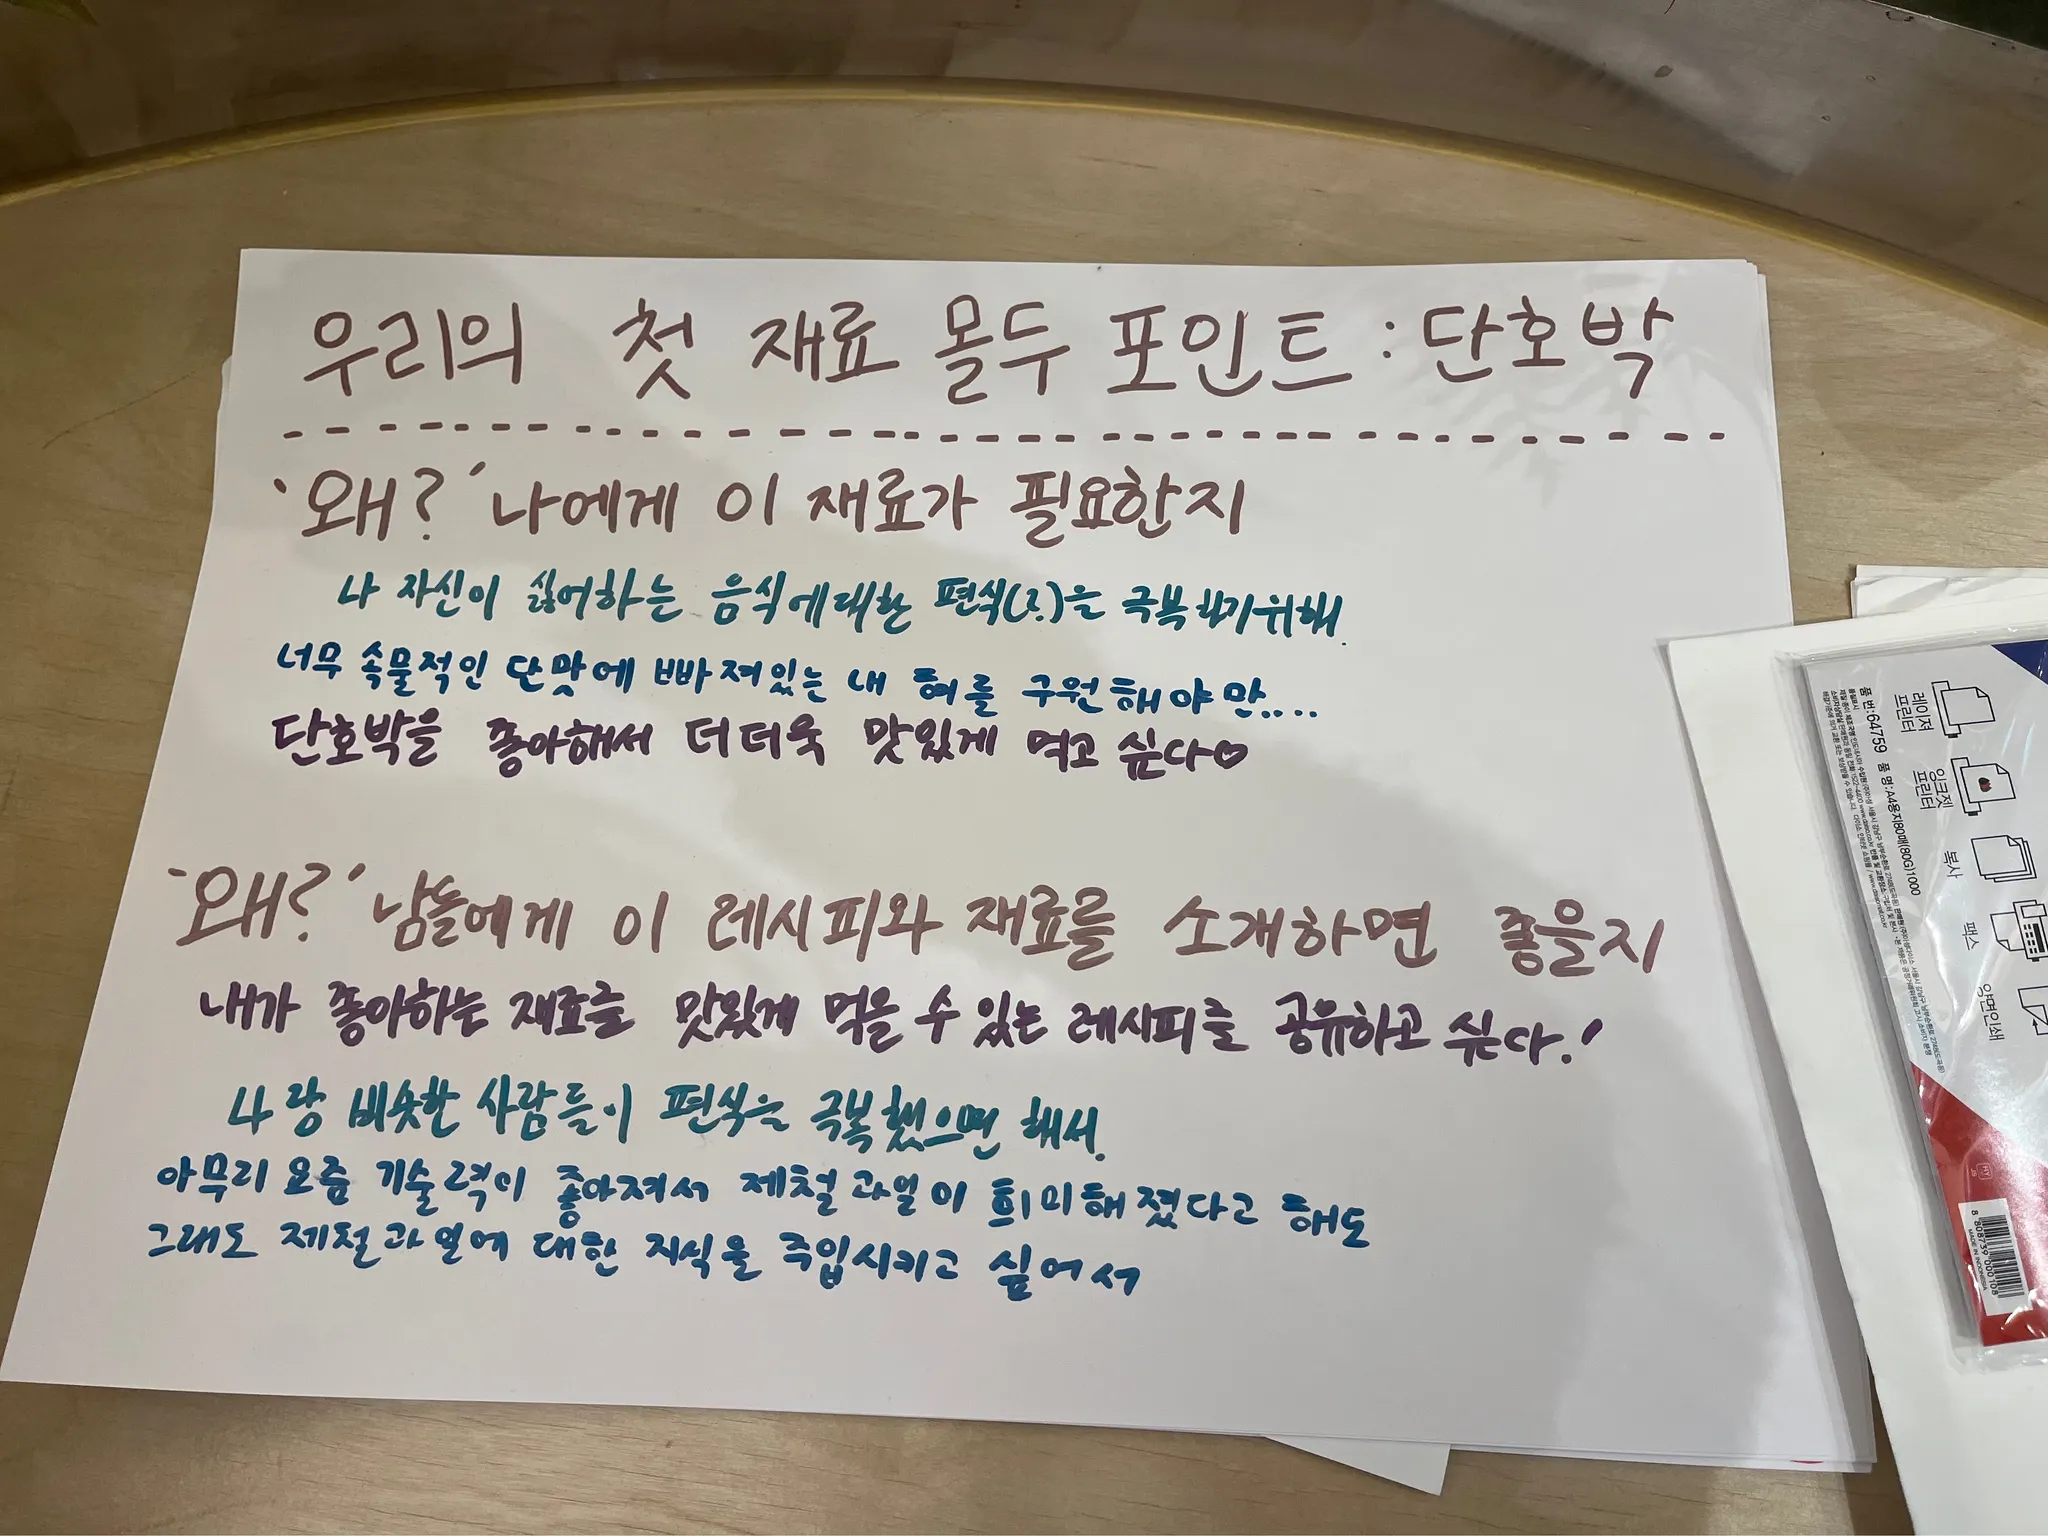 우리의 첫 재료 몰두 포인트 : 단호박
'왜?' 나에게 이 재료가 필요한지
나 자신이 싫어하는 음식에대한 편식(?)을 극복하기위해.
너무 속물적인 단맛에 빠져있는 내 혀를 구원해야만....
단호박을 좋아해서 더더욱 맛있게 먹고 싶다♡
'왜?' 남들에게 이 레시피와 재료를 소개하면 좋을지
내가 좋아하는 재료를 맛있게 먹을 수 있는 레시피를 공유하고 싶다.!
나랑 비슷한 사람들이 편식을 극복했으면 해서.
아무리 요즘 기술력이 좋아져서 제철과일이 희미해졌다고 해도
그래도 제철과일에 대한 지식을 주입시키고 싶어서
레이저
프린터
잉크젯
프린터
복사
팩스
양면인쇄
품번:64759 품명:A4용지80매(80G)1000
8 808739 000108
MADE IN INDONESIA